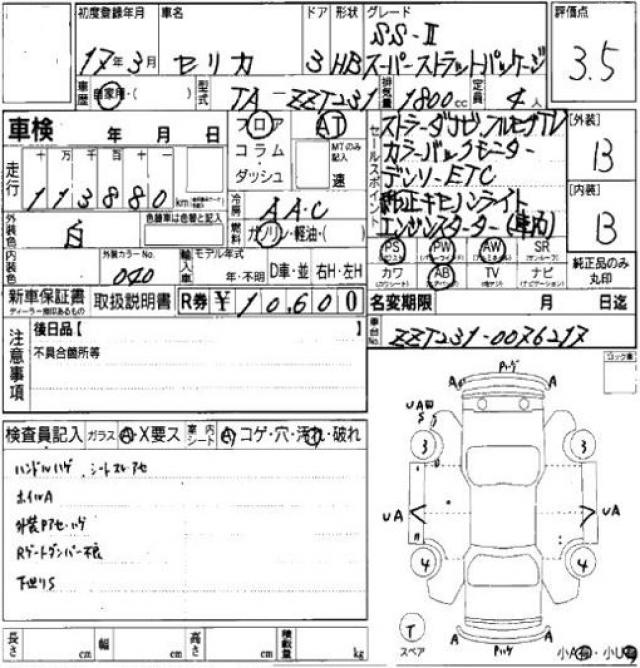 初度登録年月 車名 ドア 形状 グレード 評価点
17年3月 セリカ 3 HB SS-II
スーパーストラットパッケージ 3.5
車歴 自家用・( ) 型式 TA-ZZT231 排気量 1800cc 定員 4人
車検 年 月 日 フロア AT
コラム MTのみ記入
ダッシュ 速
セールスポイント ストラーダナビ、フルセグTV
カラーバックモニター
デンソーETC
純正キセノンライト
エンジンスターター(車内)
[外装] B
[内装] B
純正品のみ丸印
走行 十万千百十一
113880 km
冷房 AAC
外装色 白 色替車は色替と記入 燃料 ガソリン・軽油・( )
内装色 外装カラーNo. 040 輸入車 モデル年式 年・不明 D車・並 右H・左H
PS PW AW SR
カワ AB TV ナビ
新車保証書 取扱説明書 R券 ¥10,600
ディーラー捺印あるもの
名変期限 月 日迄
車台No. ZZT231-0076217
注意事項 後日品【 】
不具合箇所等
検査員記入 ガラス A・X要ス 室内シート A・コゲ・穴・汚れ・破れ
ハンドルハゲ、シートスレアセ
ホイルA
外装Pアセ・ハゲ
Rゲートダンパー不良
下廻りS
長さ cm 幅 cm 高さ cm 積載量 kg
Pハゲ
A A
UA
S
3 3
UA UA
4 4
T
スペア
A A
Pハゲ
小A有・小U有